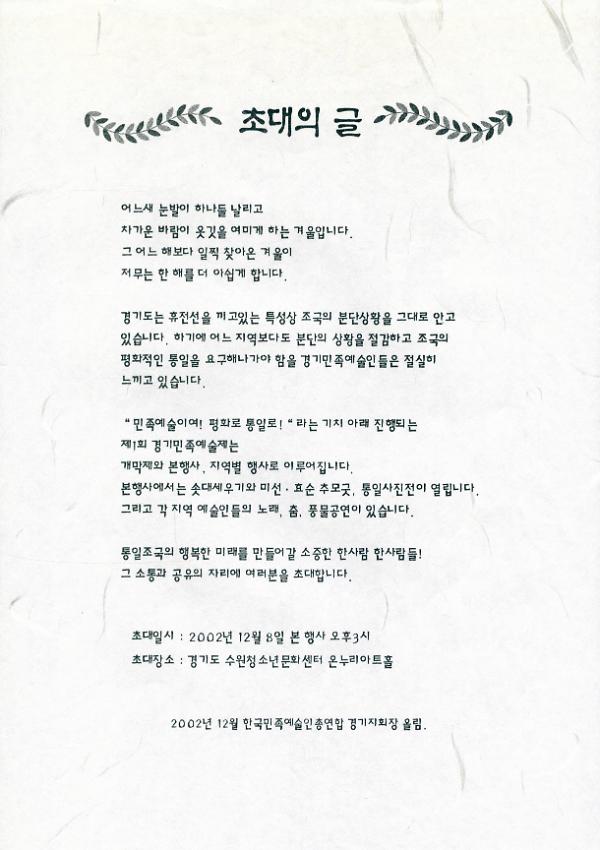 초대의 글
어느새 눈발이 하나둘 날리고
차가운 바람이 옷깃을 여미게 하는 겨울입니다.
그 어느 해보다 일찍 찾아온 겨울이
저무는 한 해를 더 아쉽게 합니다.
경기도는 휴전선을 끼고있는 특성상 조국의 분단상황을 그대로 안고
있습니다. 하기에 어느 지역보다도 분단의 상황을 절감하고 조국의
평화적인 통일을 요구해나가야 함을 경기민족예술인들은 절실히
느끼고 있습니다.
“민족예술이여! 평화로 통일로! “라는 기치 아래 진행되는
제1회 경기민족예술제는
개막제와 본행사, 지역별 행사로 이루어집니다.
본행사에서는 솟대세우기와 미선 · 효순 추모굿, 통일사진전이 열립니다.
그리고 각 지역 예술인들의 노래, 춤, 풍물공연이 있습니다.
통일조국의 행복한 미래를 만들어갈 소중한 한사람 한사람들!
그 소통과 공유의 자리에 여러분을 초대합니다.
초대일시 : 2002년 12월 8일 본 행사 오후3시
초대장소 : 경기도 수원청소년문화센터 온누리아트홀
2002년 12월 한국민족예술인총연합 경기지회장 올림.